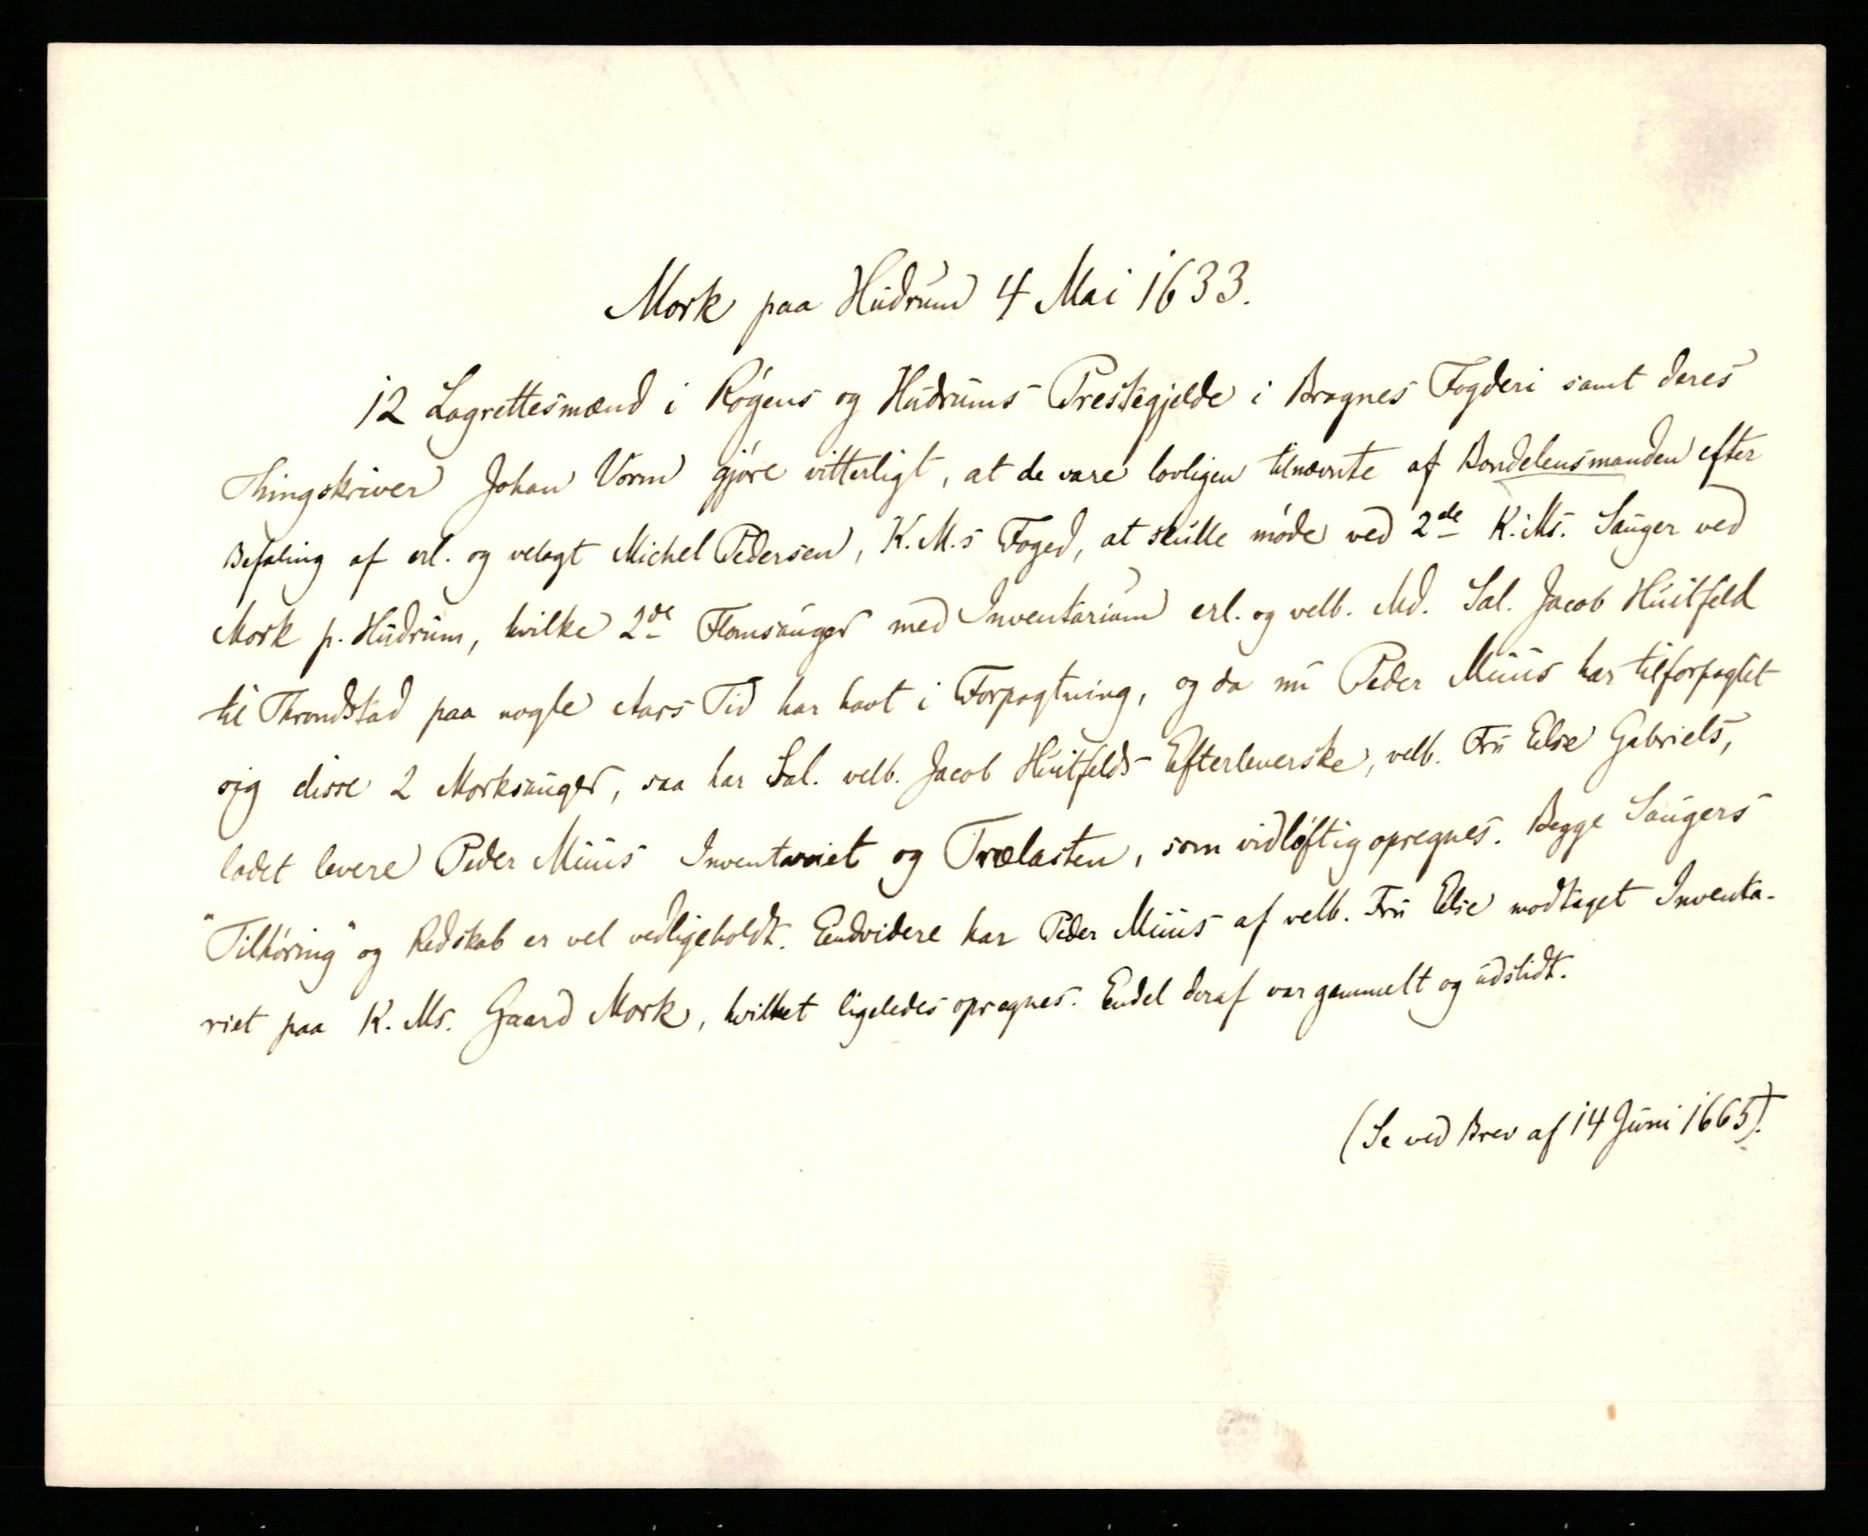 Mork paa Hudrum 4 Mai 1633.
12 Lagrettesmænd i Røgens og Hudrums Prestegjelde i Bragnes Fogderi samt deres
Thingskriver Johan Vorm gjøre vitterligt, at de vare lovligen tilnævnte af Bondelensmanden efter
Befaling af erl. og velagt Michel Pedersen, K.M.s Foged, at skulle møde ved 2de K. Ms. Sauger ved
Mork p. Hudrum, hvilke 2de Flomsauger med Inventarium erl. og velb. Md. Sal. Jacob Huitfeld
til Throndstad paa nogle Aars Tid har havt i Forpagtning, og da nu Peder Muus har tilforpagtet
sig disse 2 Morksauger, saa har Sal. velb. Jacob Huitfelds Efterleverske, velb. Fru Else Gabriels,
ladet levere Peder Muus Inventariet og Trælasten, som vidløftig opregnes. Begge Saugers
"Tilhøring" og Redskab er vel vedligeholdt. Eendvidere har Peder Muus af velb. Fru Else modtaget Inventa-
riet paa K. Ms. Gaard Mork, hvilket ligeledes opregnes. Endel deraf var gammelt og udslidt.
(Se ved Brev af 14 Juni 1665).